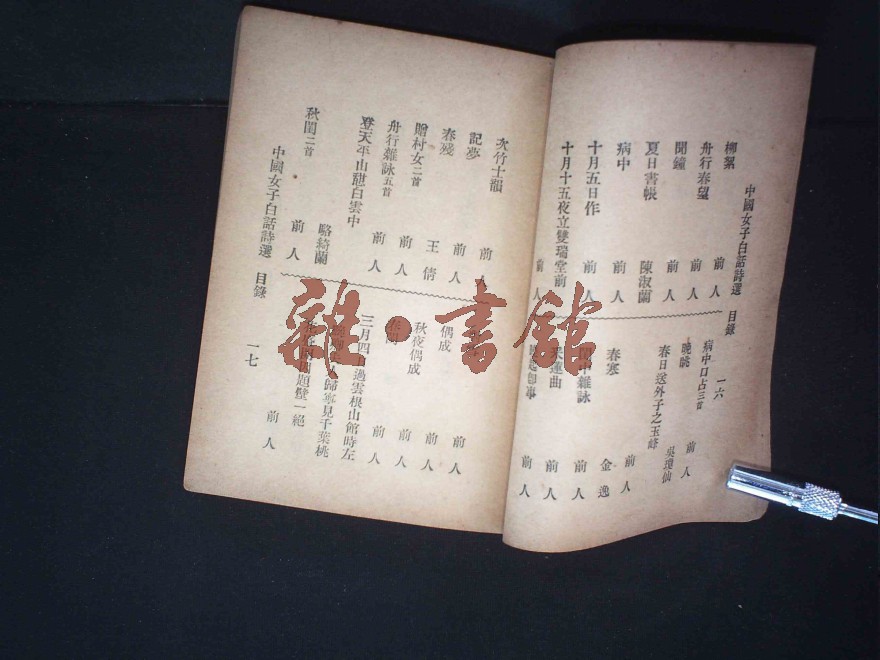 中國女子白話詩選 目錄 一六
柳絮 前人
舟行春望 前人
聞鐘 前人
夏日書帳 陳淑蘭
病中 前人
十月五日作 前人
十月十五夜立雙瑞堂前 前人
病中口占三首
晚眺 前人
春日送外子之玉峰 吳瓊仙
春寒 前人
金逸
中雜詠 前人
采蓮曲 前人
前人
次竹士韻 前人
記夢 前人
春殘 王倩
贈村女二首 前人
舟行雜詠五首 前人
登天平山憩白雲中
駱綺蘭
秋閨二首 前人
前人
偶成 前人
秋夜偶成 前人
前人
三月四日過雲根山館時左
歸寧見千葉桃
題壁一絕 前人
中國女子白話詩選 目錄 一七
雜·書館